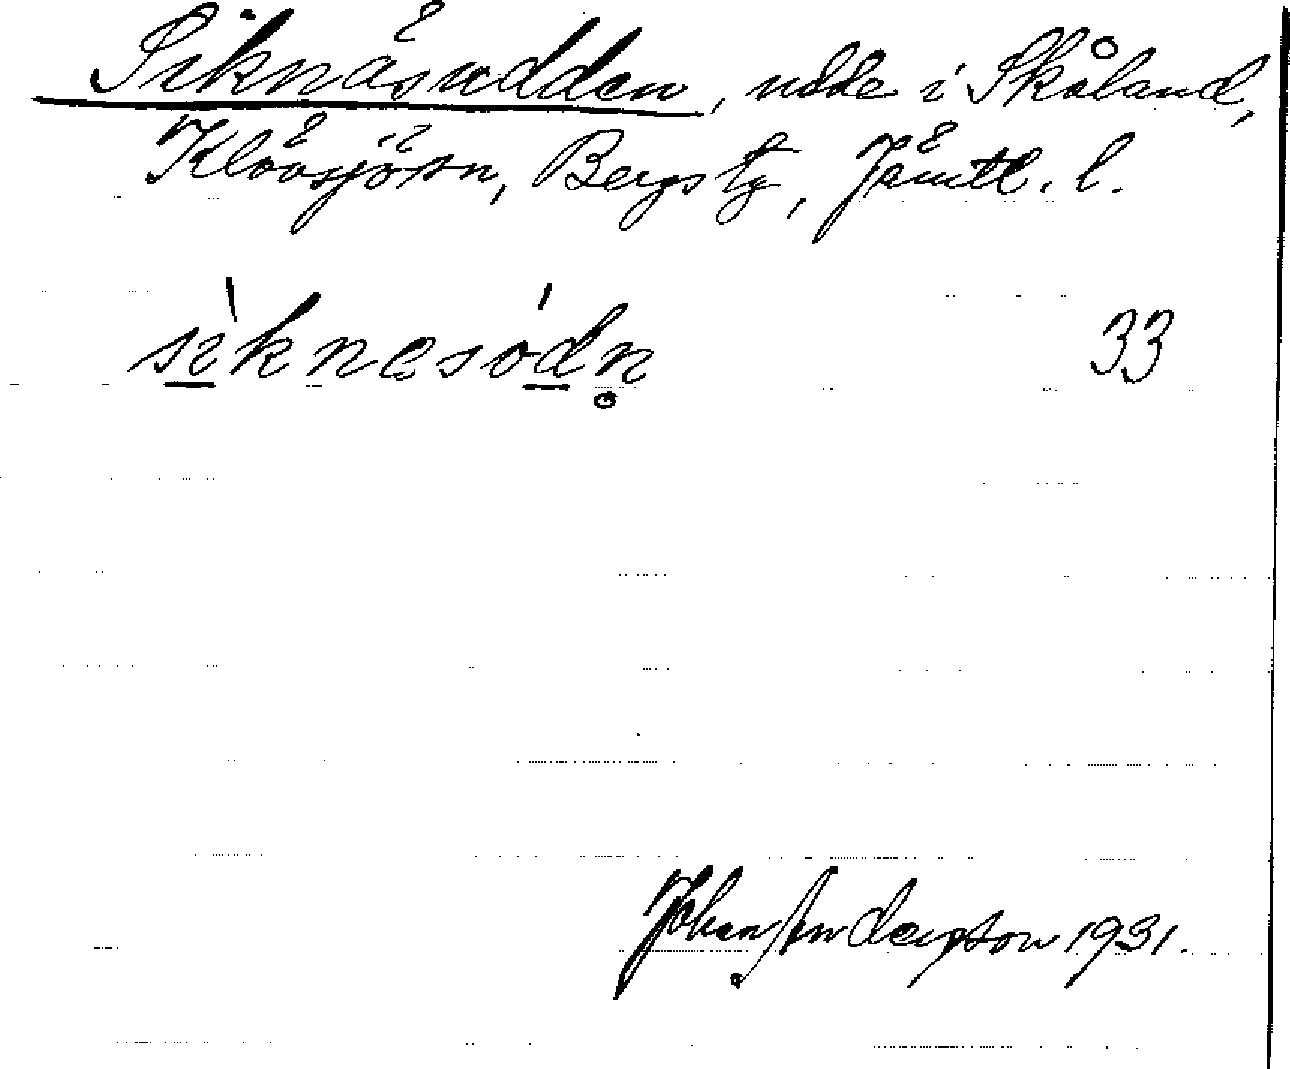 Siknåsudden, udde i Skåland,
Klövsjö sn, Bergs tg, Jämtl. l.
sìknesódn̥ 33
Johan Anderson 1931.